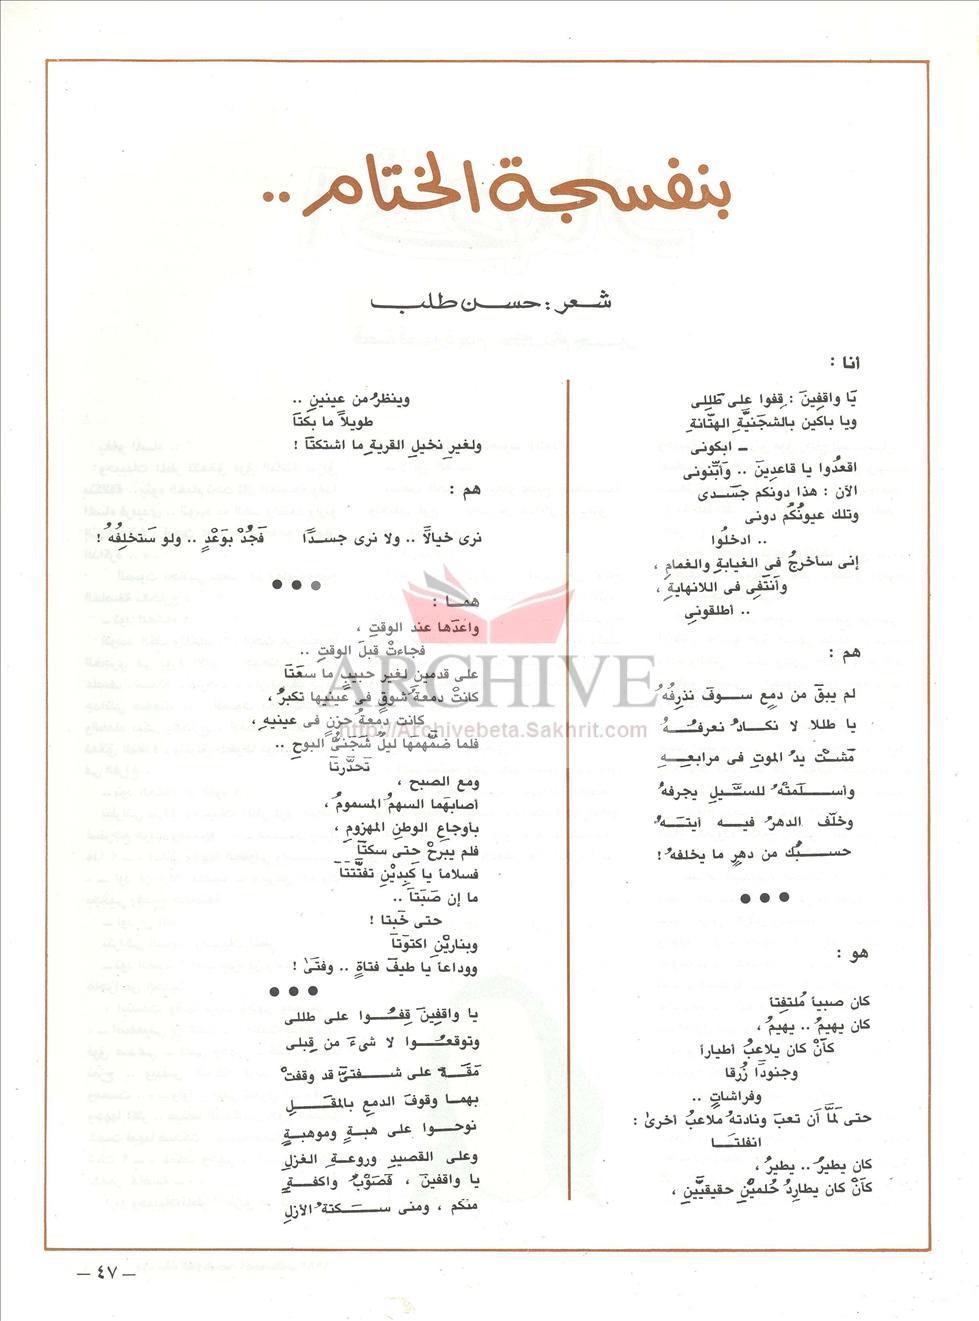 بنفسجة الختام ..
شعر : حسن طلب
أنا :
يَا وَاقفينَ : قِفوا عَلى طَلَلِى
ويا باكين بالشجَنيَّةِ الهتَّانةِ
ـ ابكونى
اقعدُوا يا قاعدِينَ .. وَأبّنونى
الآن : هذا دونكم جَسَدى
وتلك عيونُكُم دونى
.. ادخلُوا
إنى سأخرجُ فى الغيابةِ والغمامِ ،
وَأنتفِى فى اللانهايةِ ،
.. أطلقونى
هم :
لم يبقَ من دمعٍ سوفَ نذرِفُهُ
يا طللا لا نكادُ نعرفُهُ
مَشتْ يدُ الموتِ فى مرابعِهِ
وأسلمتْهُ للسَّيلِ يجرفهُ
وخلّف الدهرُ فيه أيتَهُ
حسبُك من دهرٍ ما يخلفهُ !
●●●
هو :
كان صبياً مُلتفِتاً
كان يهيمُ .. يهيمُ ،
كأنْ كان يلاعبُ أطياراً
وجنودًا زُرقا
وفراشاتٍ ..
حتى لمَّا أن تعبَ ونادتهُ ملاعبُ أخرىٰ :
انفلتَا
كان يطيرُ .. يطيرُ ،
كأنْ كان يطارِدُ حُلمينِ حقيقيَّينِ ،
وينظرُ من عينينِ ..
طويلاً ما بكتَا
ولغيرِ نخيل القريةِ ما اشتكتَا !
هم :
نرى خيالاً .. ولا نرى جسدًا فَجُدْ بوَعْدٍ .. ولو سَتخلِفُهُ !
●●●
هما :
واعَدَها عند الوقتِ ،
فجاءتْ قبلَ الوقتِ ..
على قدمينِ لغيرِ حبيبٍ ما سعَتَا
كانتْ دمعةُ شوقٍ فى عينيها تكبرُ ،
كانت دمعةُ حزنٍ فى عينيهِ ،
فلما ضمَّهمها ليلُ شَجَنىُّ البوحِ ..
تَحَدَّرتَا
ومع الصبح ،
أصابَهما السهمُ المسمومُ ،
بأوجاعِ الوطنِ المهزومِ ،
فلم يبرحْ حتى سكتَا
فسلاماً يا كَبِدِيْنِ تفتَّتتَا
ما إن صَبَتَا ..
حتى خَبتا !
وبنارَيْنِ اكتوَتَا
ووداعاً يا طيفَ فتاةٍ .. وفتَىٰ !
●●●
يا واقفينَ قِفُوا على طللى
وتوقعُوا لا شىءَ من قِبلى
مقةٌ على شفتىَّ قد وقفتْ
بهما وقوفَ الدمعِ بالمقلِ
نوحُوا على هبةٍ وموهبةٍ
وعلى القصيدِ وروعةِ الغزلِ
يا واقفينَ ، فصَوْبُ واكفةٍ
منكم ، ومنى سكتةُ الأزلِ
– ٤٧ –
ARCHIVE
http://Archivebeta.Sakhrit.com